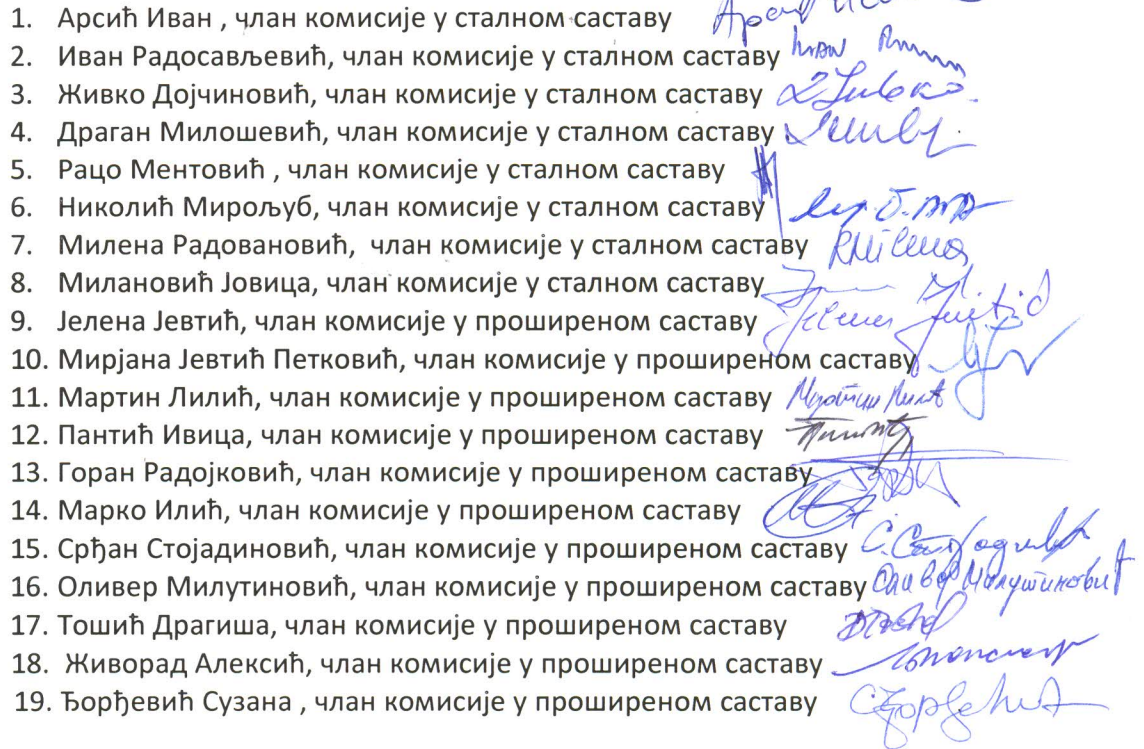 1. Арсић Иван , члан комисије у сталном саставу
2. Иван Радосављевић, члан комисије у сталном саставу
3. Живко Дојчиновић, члан комисије у сталном саставу
4. Драган Милошевић, члан комисије у сталном саставу
5. Рацо Ментовић , члан комисије у сталном саставу
6. Николић Мирољуб, члан комисије у сталном саставу
7. Милена Радовановић, члан комисије у сталном саставу
8. Милановић Јовица, члан комисије у сталном саставу
9. Јелена Јевтић, члан комисије у проширеном саставу
10. Мирјана Јевтић Петковић, члан комисије у проширеном саставу
11. Мартин Лилић, члан комисије у проширеном саставу
12. Пантић Ивица, члан комисије у проширеном саставу
13. Горан Радојковић, члан комисије у проширеном саставу
14. Марко Илић, члан комисије у проширеном саставу
15. Срђан Стојадиновић, члан комисије у проширеном саставу
16. Оливер Милутиновић, члан комисије у проширеном саставу Оливер Милутиновић
17. Тошић Драгиша, члан комисије у проширеном саставу
18. Живорад Алексић, члан комисије у проширеном саставу
19. Ђорђевић Сузана , члан комисије у проширеном саставу